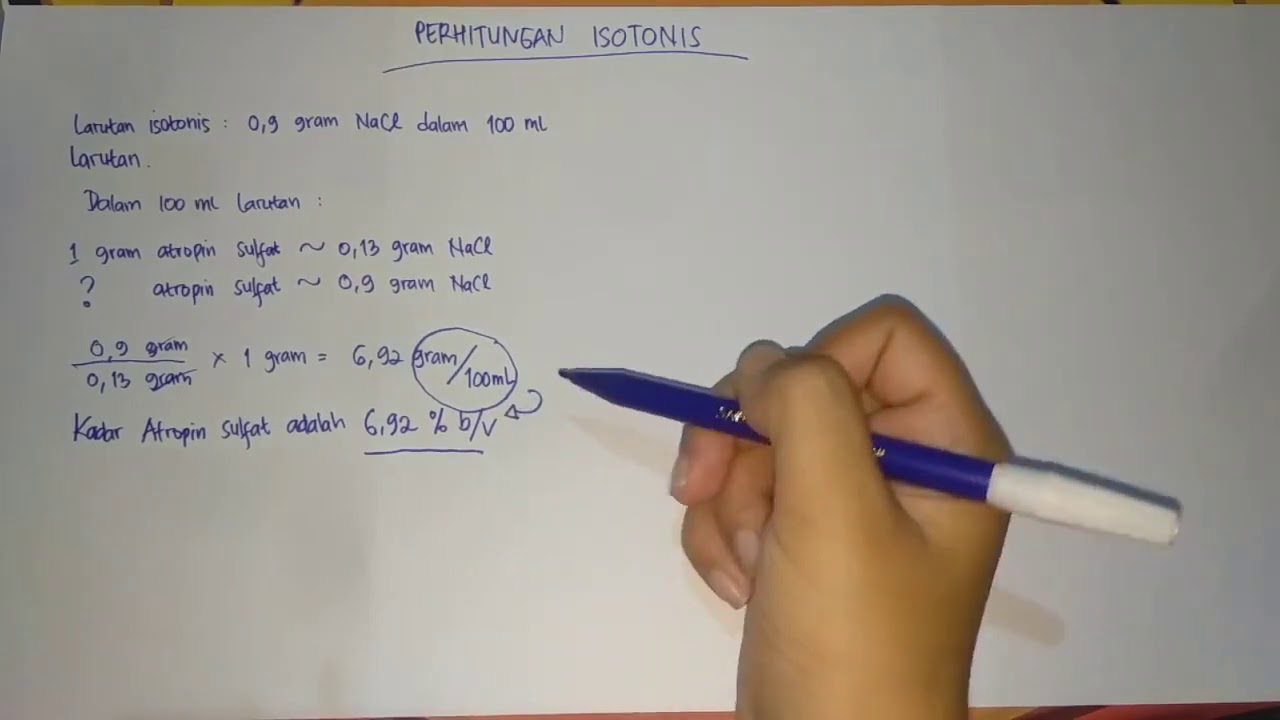 PERHITUNGAN ISOTONIS
Larutan isotonis : 0,9 gram NaCl dalam 100 ml
Larutan.
Dalam 100 ml Larutan :
1 gram atropin sulfat ~ 0,13 gram NaCl
? atropin sulfat ~ 0,9 gram NaCl
0,9 gram
0,13 gram × 1 gram = 6,92 gram/100mL
Kadar Atropin sulfat adalah 6,92 % b/v